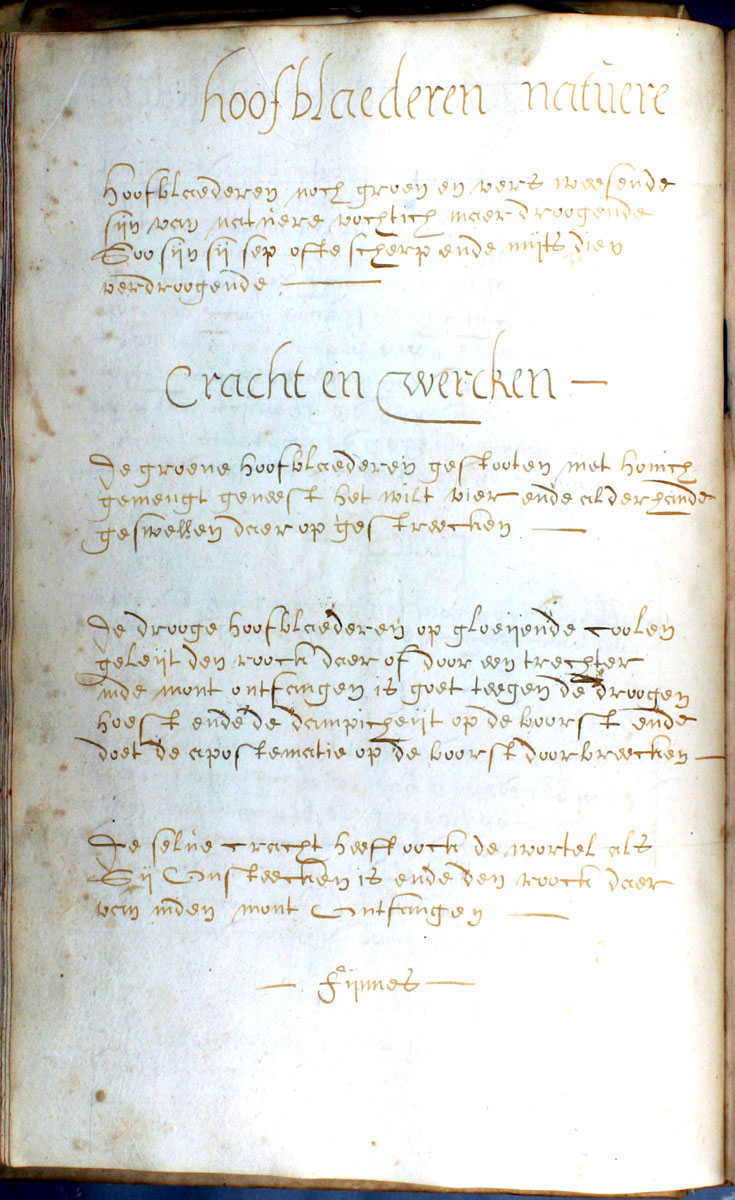 hoofblaederen natůere
Hoofblaederen noch groen en vers weesende
sijn van natůere vochtich maer droogende
Soo sijn sij sep ofte scherp ende mits dien
verdroogende
Cracht en wercken
De groene hoofblaederen gestooten met honich
gemengt geneest het wilt vier ende alderhande
geswellen daer op gestreecken
De drooge hoofblaederen op gloeijende coolen
geleijt den roock daer of door een trechter
inde mont ontfangen is goet teegen de droogen
hoest ende de dampicheijt op de borst ende
doet de apostematie op de borst doorbreecken
De selve cracht heeft oock de wortel als
Sij Onsteecken is ende den roock daer
van inden mont Ontfangen
Fijnnes